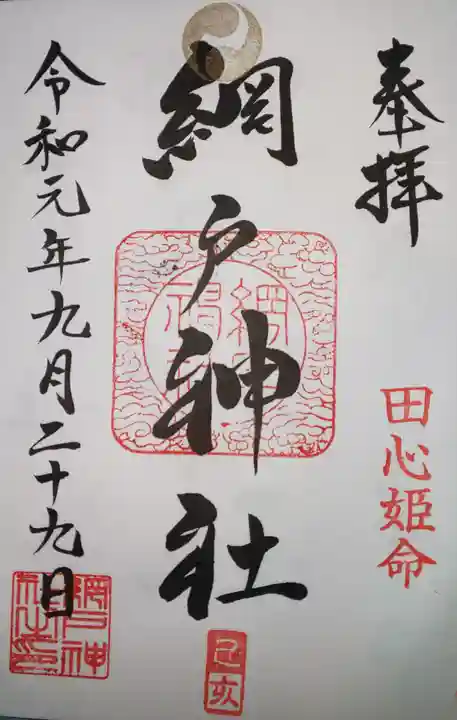 奉拝
田心姫命
網戸神社
己亥
令和元年九月二十九日
網戸神社之印